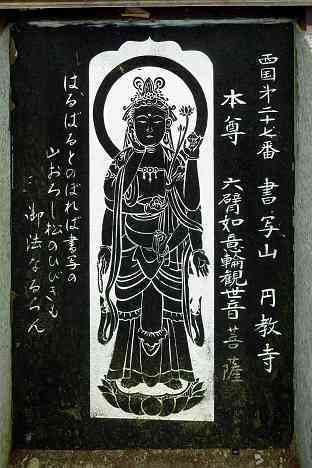 西国第二十七番 書写山 円教寺
本尊 六臂如意輪観世音菩薩
はるばるとのぼれば書写の
山おろし松のひびきも
御法なるらん